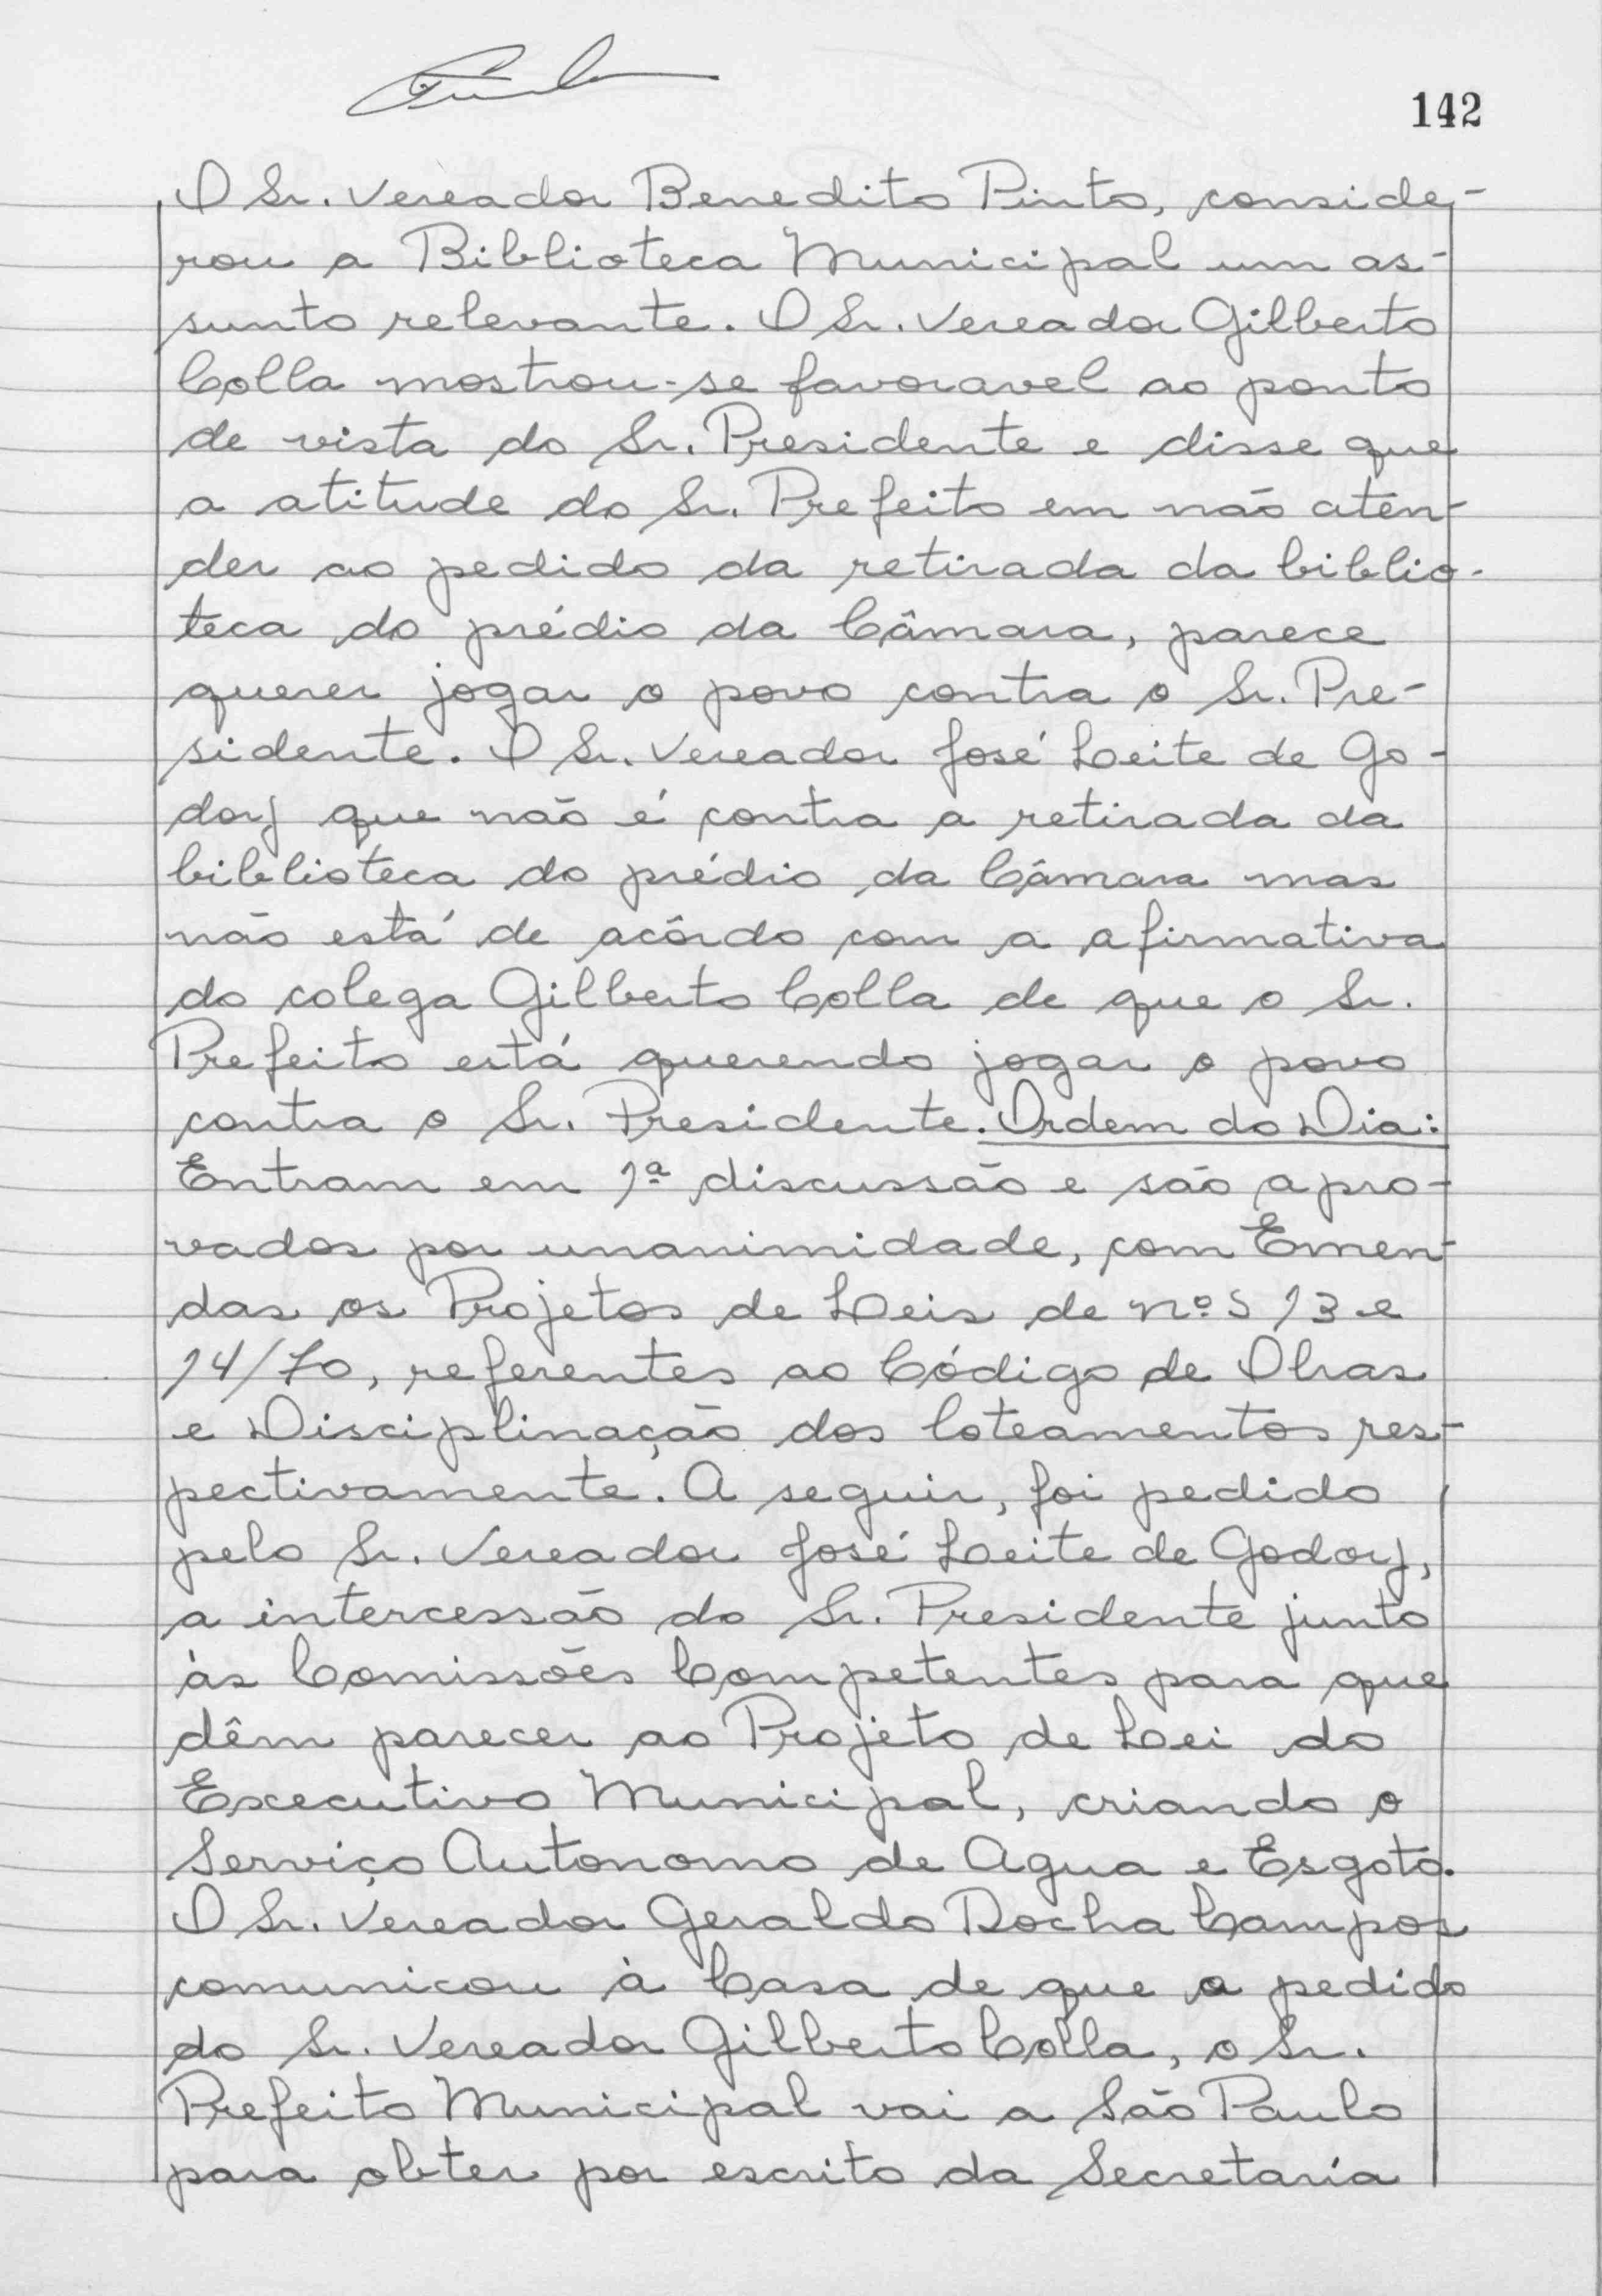 142
O Sr. Vereador Benedito Pinto, conside-
rou a Biblioteca Municipal um as-
sunto relevante. O Sr. Vereador Gilberto
Colla mostrou-se favoravel ao ponto
de vista do Sr. Presidente e disse que
a atitude do Sr. Prefeito em não aten-
der ao pedido da retirada da biblio-
teca do prédio da Câmara, parece
querer jogar o povo contra o Sr. Pre-
sidente. O Sr. Vereador José Leite de Go-
doy que não é contra a retirada da
biblioteca do prédio da Câmara mas
não está de acôrdo com a afirmativa
do colega Gilberto Colla de que o Sr.
Prefeito está querendo jogar o povo
contra o Sr. Presidente. Ordem do Dia:
Entram em 1ª discussão e são apro-
vados por unanimidade, com Emen-
das os Projetos de Leis de nº.s 13 e
14/70, referentes ao Código de Obras
e Disciplinação dos loteamentos res-
pectivamente. A seguir, foi pedido
pelo Sr. Vereador José Leite de Godoy,
a intercessão do Sr. Presidente junto
às Comissões Competentes para que
dêm parecer ao Projeto de Lei do
Executivo Municipal, criando o
Serviço Autonomo de Agua e Esgoto.
O Sr. Vereador Geraldo Rocha Campos
comunicou à Casa de que a pedido
do Sr. Vereador Gilberto Colla, o Sr.
Prefeito Municipal vai a São Paulo
para obter por escrito da Secretaria